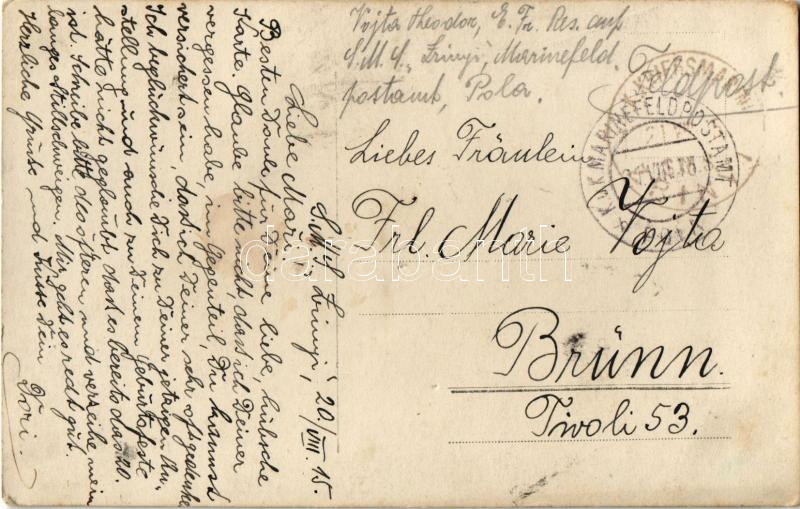 Vojta Theodor, E. Fr. Res. auf
S.M.S. „Zrinyi“, Marinefeld.
postamt, Pola.
Feldpost.
K.u.K. MARINEFELDPOSTAMT
Liebes Fräulein
Frl. Marie Vojta
Brünn.
Tivoli 53.
S.M.S. Zrinyi, 20./VIII. 15.
Liebe Mari!
Besten Dank für Deine liebe, hübsche
Karte. Glaube bitte nicht, dass ich Deiner
vergessen habe, im Gegenteil, Du kannst
versichert sein, dass ich Deiner sehr oft gedenke.
Ich beglückwünsche Dich zu Deiner jetzigen An-
stellung und auch zu Deinem Geburtsfeste
hätte nicht geglaubt, dass es bereits das 20.
ist. Schreibe bitte des öfteren und verzeihe mein
langes Stillschweigen. Mir geht es recht gut.
Herzliche Grüsse und Küsse Dein
Dori.
darabanth